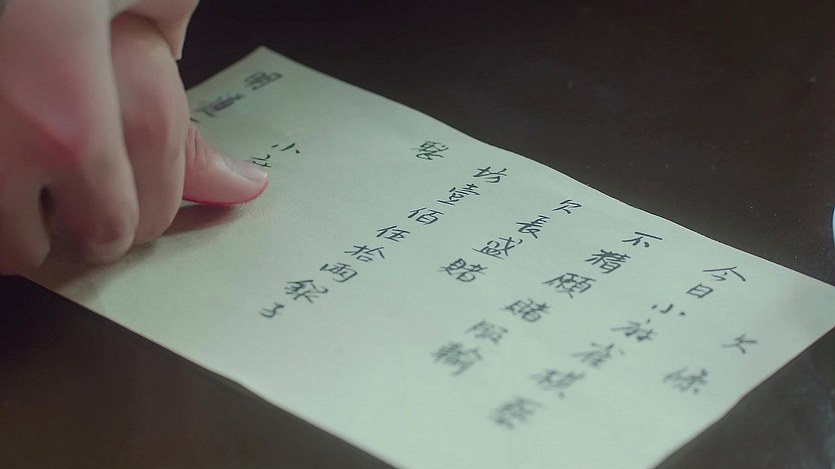 欠條
今日小麻雀棋藝
不精願賭服輸
欠長盛賭
坊壹佰伍拾兩銀子
整
小